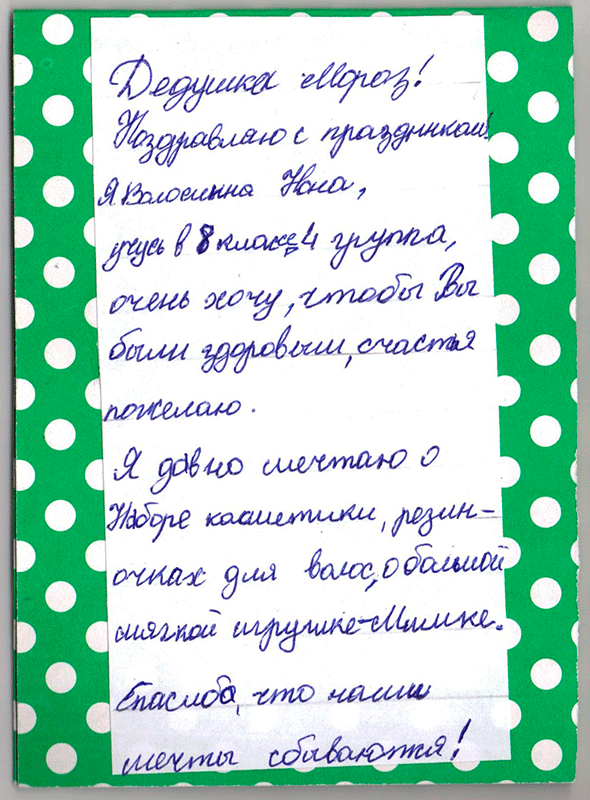 Дедушка Мороз!
Поздравляю с праздником!
Я Волосинна Нона,
учусь в 8 классе, 4 группа,
очень хочу, чтобы Вы
были здоровыи, счастья
пожелаю.
Я давно мечтаю о
Наборе косметики, резин-
очках для волос, о большой
мягкой игрушке-Мишке.
Спасибо, что наши
мечты сбываются!